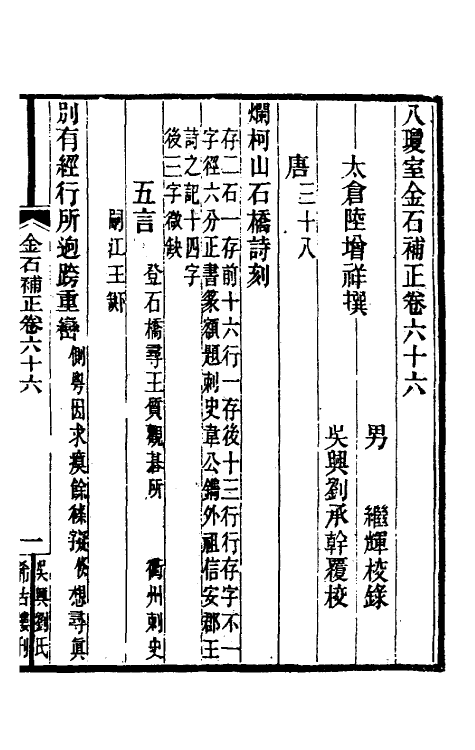 八瓊室金石補正卷六十六
太倉陸增祥撰
男 繼輝校錄
吳興劉承幹覆校
唐三十八
爛柯山石橋詩刻
存二石一存前十六行一存後十三行行存字不一
字徑六分正書篆額題刺史韋公鐫外祖信安郡王
詩之記十四字
後三字微缺
五言 登石橋尋王質觀棊所 衢州刺史
嗣江王禕
別有經行所逈跨重巒側 因求瘼餘 想尋眞
金石補正卷六十六
一
吳興劉氏
希古樓刊